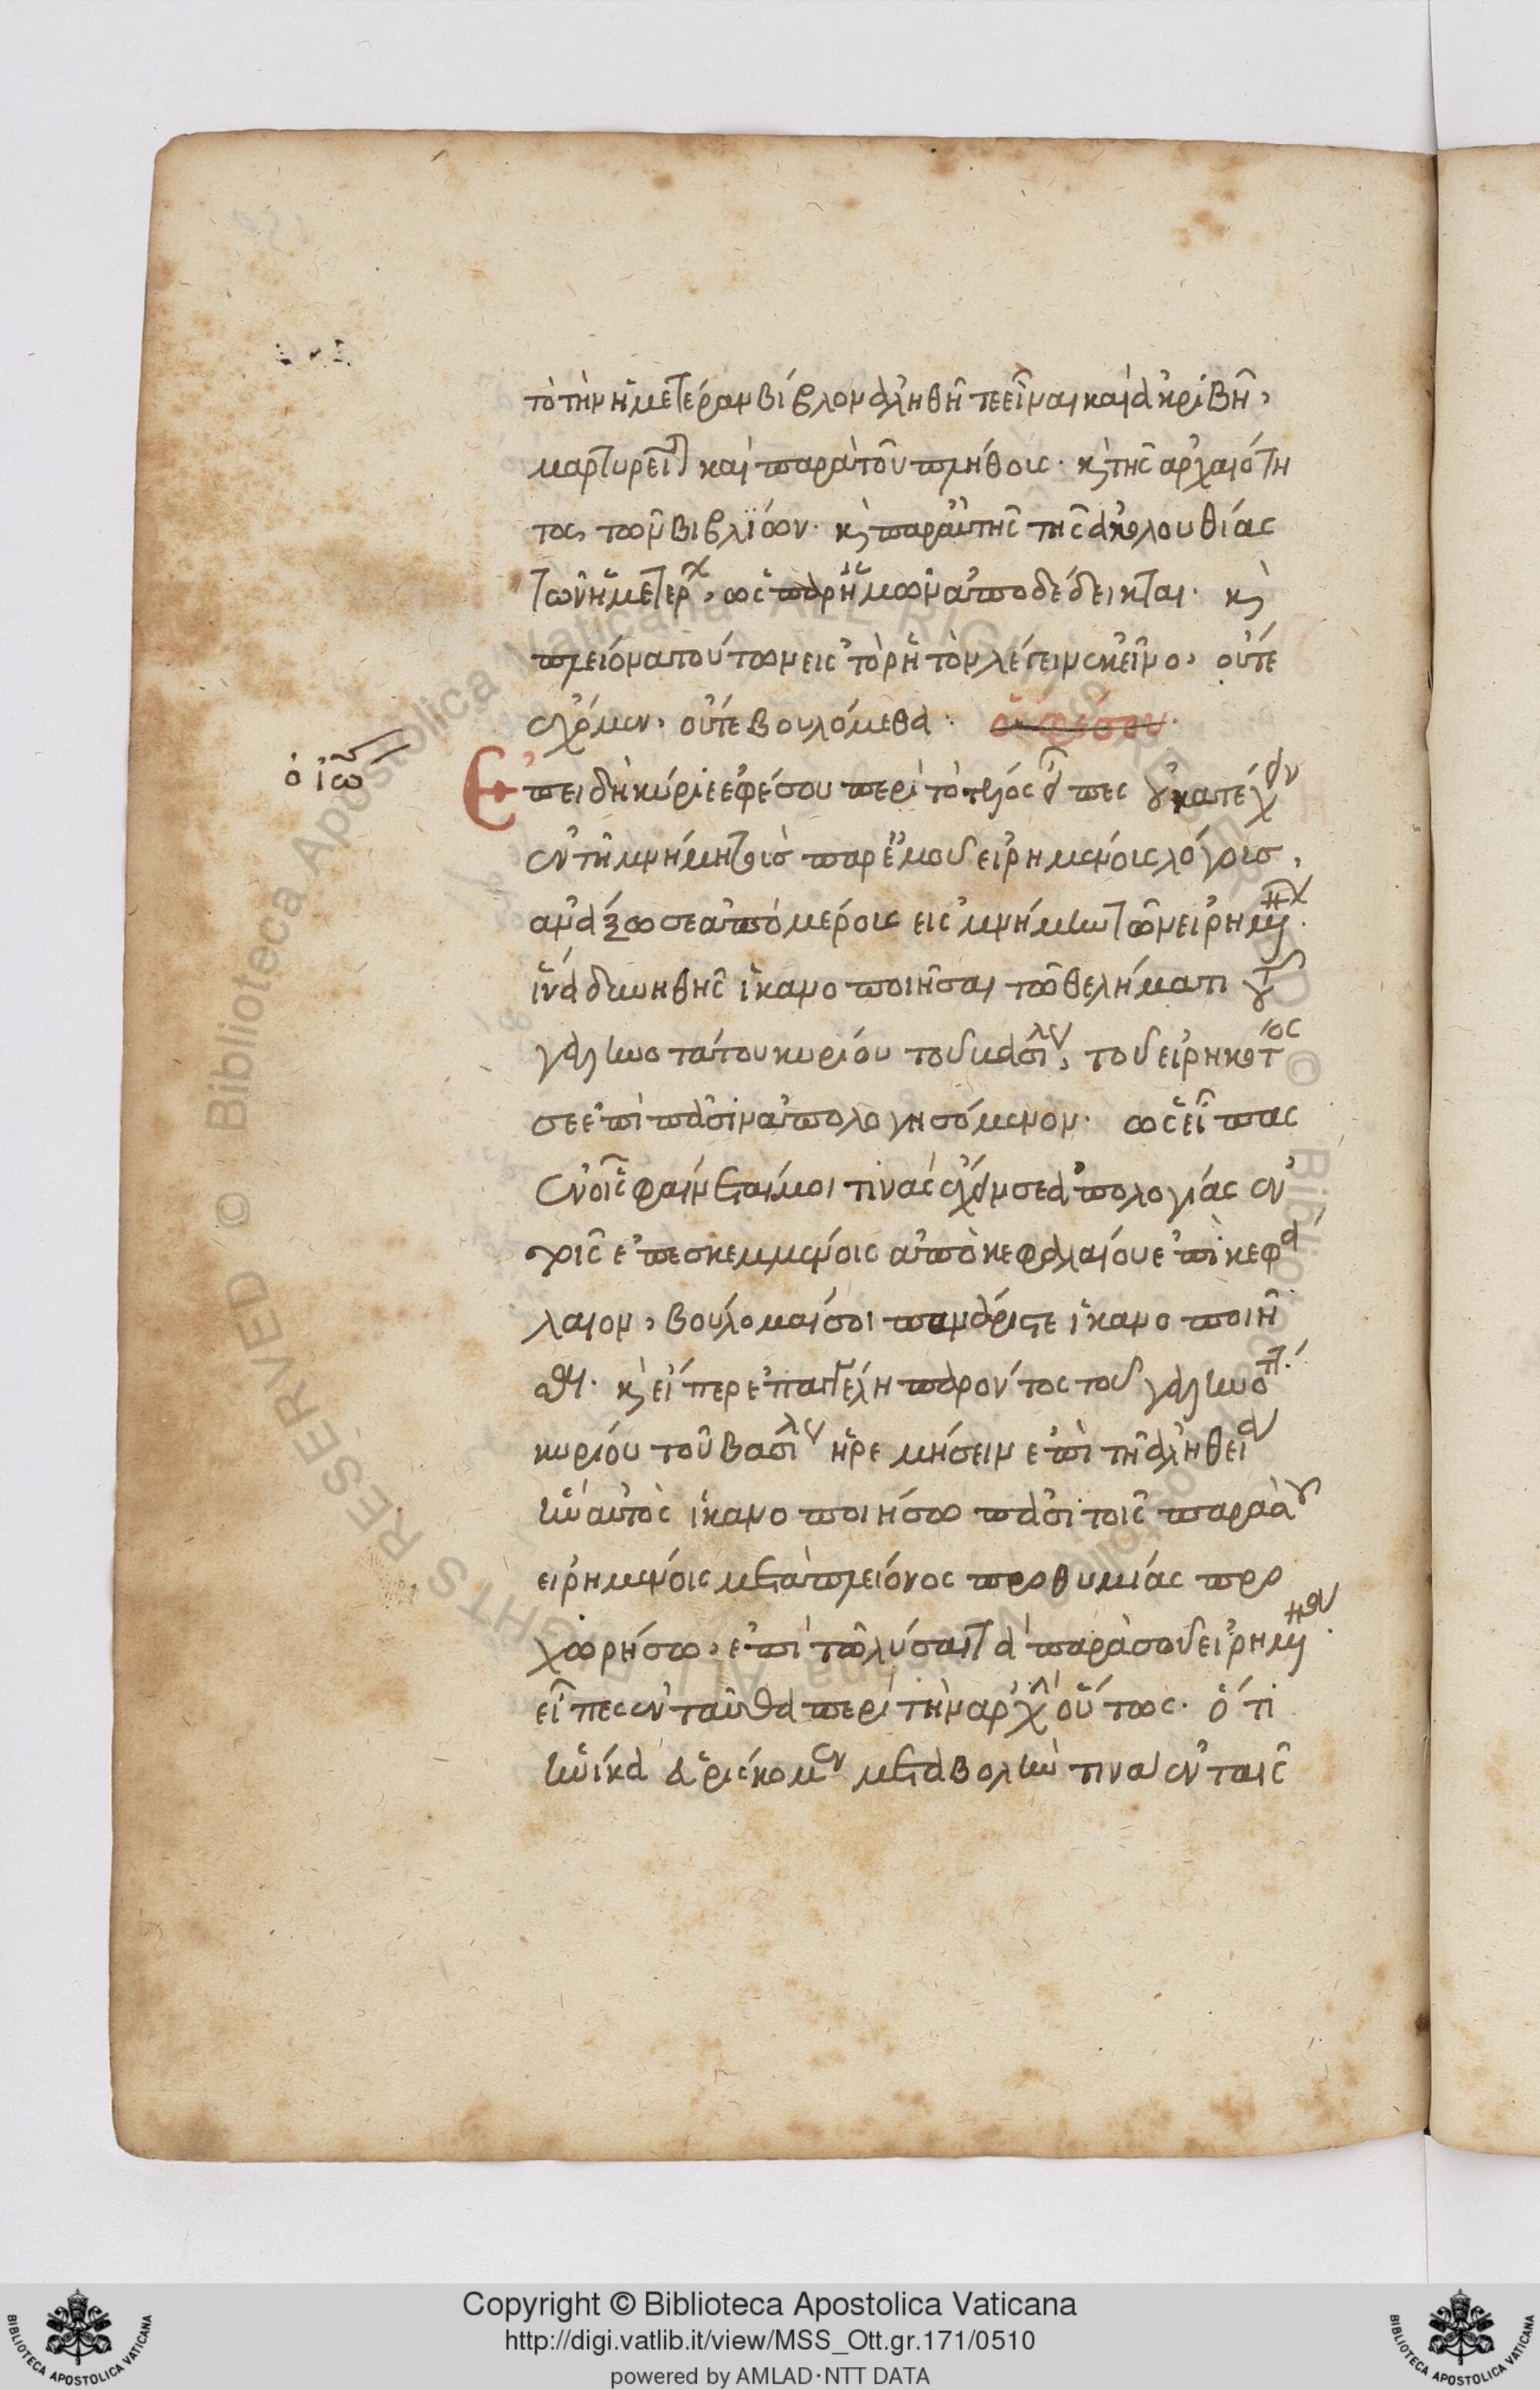 τὸ τὴν ἡμετέραν βίβλον ἀληθῆ τε εἶναι καὶ ἀκριβῆ,
μαρτυρεῖται καὶ παρὰ τοῦ πλήθους· κ̀ τῆς ἀρχαιότη
τος τῶν βιβλίων· κ̀ παρ' αὐτῆς τῆς ἀκολουθίας
τῶν ἡμετέρων, ὡς παρ' ἡμῶν ἀποδέδεικται· κ̀
πλεῖον ἀπὸ τούτων εἰς τὸ ῥητὸν λέγειν ἐκεῖνο, οὔτε
ἔχομεν, οὔτε βουλόμεθα· ὁ ἐφέσου·
ὁ ἰω
Ἐπειδὴ κύριε ἐφέσου περὶ τὸ τέλος εἶπες οὐ κατέχειν
ἐν τῇ μνήμῃ τοῖς παρ' ἐμοῦ εἰρημένοις λόγοις,
ἀνάξω σε ἀπὸ μέρους εἰς μνήμην τῶν εἰρημένων·
ἵνα δυνηθῇς ἱκανοποιῆσαι τῷ θελήματι τοῦ
γαληνοτάτου κυρίου τοῦ βασιλέως, τοῦ εἰρηκότος
σε ἐπὶ πᾶσιν ἀπολογησόμενον· ὡς εἶπας
ἐν οἷς φαίνεταί μοι τινὰς ἔχειν σε ἀπολογίας ἐν
τοῖς ἐπεσκεμμένοις ἀπὸ κεφαλαίου ἐπὶ κεφά
λαιον, βούλομαί σοι πανάριστε ἱκανοποιῆ
σαι· κ̀ εἴπερ ἐπαγγέλῃ παρόντος τοῦ γαληνοτ
κυρίου τοῦ βασιλέως ἠρεμήσειν ἐπὶ τῇ ἀληθείᾳ
ἣν αὐτὸς ἱκανοποιήσω πᾶσι τοῖς παρὰ σοῦ
εἰρημένοις μετὰ πλείονος προθυμίας προ
χωρήσω, ἐπὶ τῷ λῦσαι τὰ παρὰ σοῦ εἰρημένα·
εἶπες ἐνταῦθα περὶ τὴν ἀρχὴν οὕτως· ὅτι
ἡνίκα εὑρίσκομεν μεταβολήν τινα ἐν ταῖς